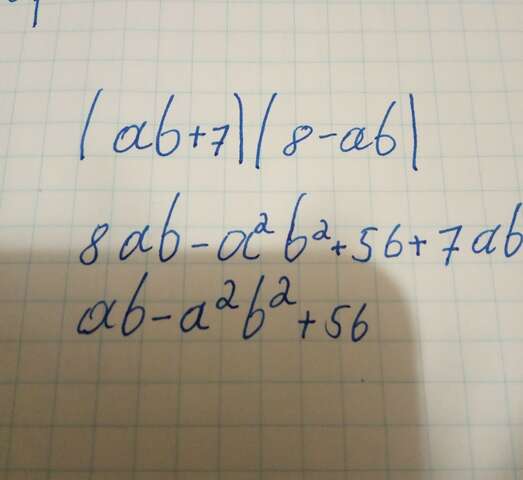 (ab+7)(8-ab)
8ab-a²b²+56+7ab
ab-a²b²+56